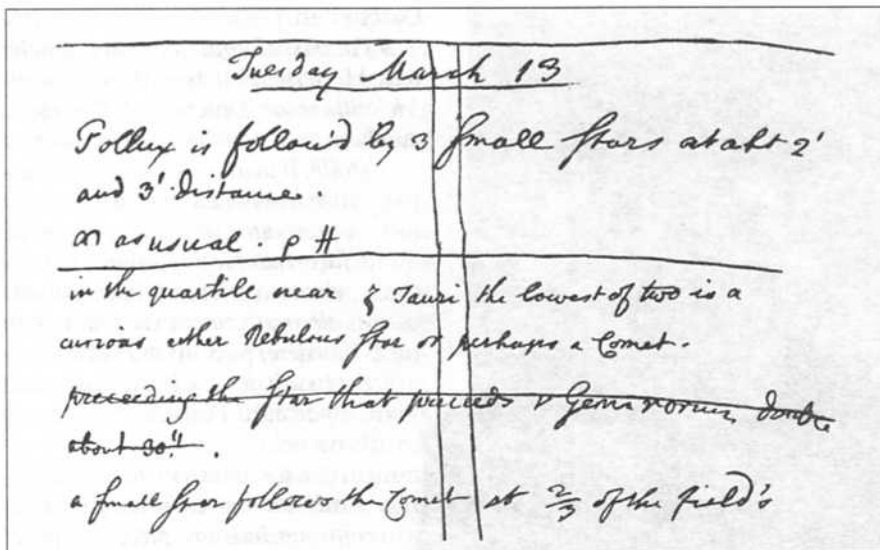 Tuesday March 13
Pollux is follow'd by 3 small stars at abt 2'
and 3' distance.
as usual. p #
in the quartile near ζ Tauri the lowest of two is a
curious either Nebulous star or perhaps a Comet.
preceeding the star that preceeds ν Geminorum double
about 30".
a small star follows the Comet at 2/3 of the field's